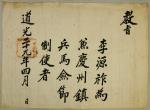 教旨
李源祚為
兼慶州鎮
兵馬僉節
制使者
道光二十九年四月 日